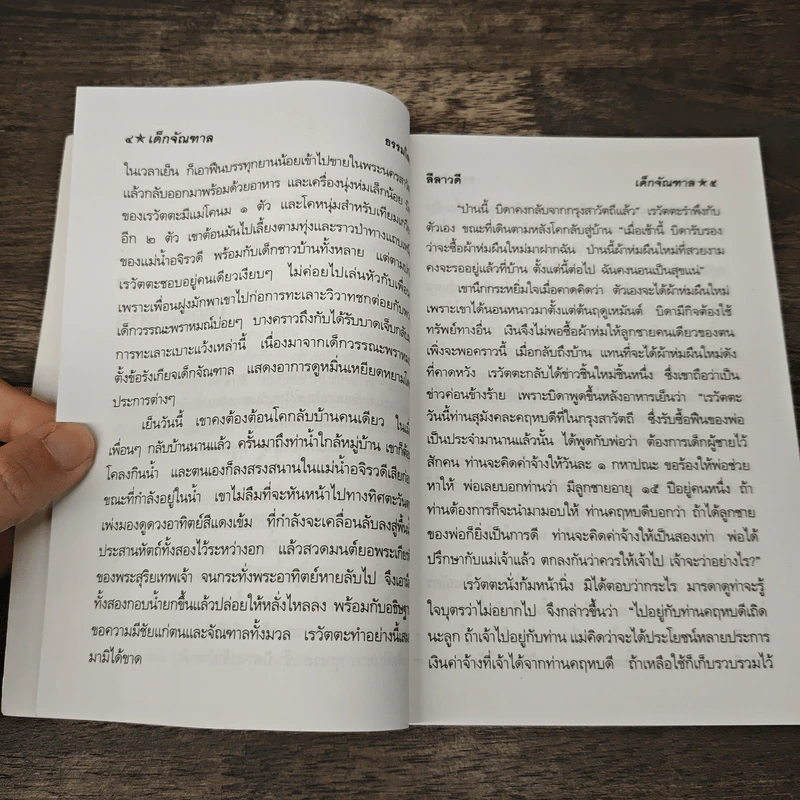 ๔ ★ เด็กจัณฑาล
ในเวลาเย็น ก็เอาฟืนบรรทุกยานน้อยเข้าไปขายในพระนครสาวัตถี
แล้วกลับออกมาพร้อมด้วยอาหาร และเครื่องนุ่งห่มเล็กน้อย
ของเรวัตตะมีแม่โคนม ๑ ตัว และโคหนุ่มสำหรับเทียมเกวียน
อีก ๒ ตัว เขาต้อนมันไปเลี้ยงตามทุ่งและราวป่าทางแถบเหนือ
ของแม่น้ำอจิรวดี พร้อมกับเด็กชาวบ้านทั้งหลาย แต่ตามปกติ
เรวัตตะชอบอยู่คนเดียวเงียบๆ ไม่ค่อยไปเล่นหัวกับเพื่อน
เพราะเพื่อนฝูงมักพาเขาไปก่อการทะเลาะวิวาทชกต่อยกับพวก
เด็กวรรณะพราหมณ์บ่อยๆ บางคราวถึงกับได้รับบาดเจ็บกลับมา
การทะเลาะเบาะแว้งเหล่านี้ เนื่องมาจากเด็กวรรณะพราหมณ์
ตั้งข้อรังเกียจเด็กจัณฑาล แสดงอาการดูหมิ่นเหยียดหยามโดย
ประการต่างๆ
เย็นวันนี้ เขาคงต้องต้อนโคกลับบ้านคนเดียว ในเมื่อ
เพื่อนๆ กลับบ้านนานแล้ว ครั้นมาถึงท่าน้ำใกล้หมู่บ้าน เขาก็ต้อน
โคลงกินน้ำ และตนเองก็ลงสรงสนานในแม่น้ำอจิรวดีเสียก่อน
ขณะที่กำลังอยู่ในน้ำ เขาไม่ลืมที่จะหันหน้าไปทางทิศตะวันตก
เพ่งมองดูดวงอาทิตย์สีแดงเข้ม ที่กำลังจะเคลื่อนลับลงสู่พื้น
ประสานหัตถ์ทั้งสองไว้ระหว่างอก แล้วสวดมนต์ยอพระเกียรติ
ของพระสุริยเทพเจ้า จนกระทั่งพระอาทิตย์หายลับไป จึงเอามือ
ทั้งสองกอบน้ำยกขึ้นแล้วปล่อยให้หลั่งไหลลง พร้อมกับอธิษฐาน
ขอความมีชัยแก่ตนและจัณฑาลทั้งมวล เรวัตตะทำอย่างนี้เสมอ
มามิได้ขาด
ลีลาวดี
เด็กจัณฑาล ★ ๕
“ป่านนี้ บิดาคงกลับจากกรุงสาวัตถีแล้ว” เรวัตตะรำพึงกับ
ตัวเอง ขณะที่เดินตามหลังโคกลับสู่บ้าน “เมื่อเช้านี้ บิดารับรอง
ว่าจะซื้อผ้าห่มผืนใหม่มาฝากฉัน ป่านนี้ผ้าห่มผืนใหม่ที่สวยงาม
คงจะรออยู่แล้วที่บ้าน ตั้งแต่นี้ต่อไป ฉันคงนอนเป็นสุขแน่”
เขานึกกระหยิ่มใจเมื่อคาดคิดว่า ตัวเองจะได้ผ้าห่มผืนใหม่
เพราะเขาได้นอนหนาวมาตั้งแต่ต้นฤดูเหมันต์ บิดามีกิจต้องใช้
ทรัพย์ทางอื่น เงินจึงไม่พอซื้อผ้าห่มให้ลูกชายคนเดียวของตน
เพิ่งจะพอคราวนี้ เมื่อกลับถึงบ้าน แทนที่จะได้ผ้าห่มผืนใหม่ดัง
ที่คาดหวัง เรวัตตะกลับได้ข่าวชิ้นใหม่ชิ้นหนึ่ง ซึ่งเขาถือว่าเป็น
ข่าวค่อนข้างร้าย เพราะบิดาพูดขึ้นหลังอาหารเย็นว่า “เรวัตตะ
วันนี้ท่านสุมังคละคฤหบดีที่ในกรุงสาวัตถี ซึ่งรับซื้อฟืนของพ่อ
เป็นประจำมานานแล้วนั้น ได้พูดกับพ่อว่า ต้องการเด็กผู้ชายไว้
สักคน ท่านจะคิดค่าจ้างให้วันละ ๑ กหาปณะ ขอร้องให้พ่อช่วย
หาให้ พ่อเลยบอกท่านว่า มีลูกชายอายุ ๑๕ ปีอยู่คนหนึ่ง ถ้า
ท่านต้องการก็จะนำมามอบให้ ท่านคฤหบดีบอกว่า ถ้าได้ลูกชาย
ของพ่อก็ยิ่งเป็นการดี ท่านจะคิดค่าจ้างให้เป็นสองเท่า พ่อได้
ปรึกษากับแม่เจ้าแล้ว ตกลงกันว่าควรให้เจ้าไป เจ้าจะว่าอย่างไร?”
เรวัตตะนั่งก้มหน้านิ่ง มิได้ตอบว่ากระไร มารดาดูท่าจะรู้
ใจบุตรว่าไม่อยากไป จึงกล่าวขึ้นว่า “ไปอยู่กับท่านคฤหบดีเถิด
นะลูก ถ้าเจ้าไปอยู่กับท่าน แม่คิดว่าจะได้ประโยชน์หลายประการ
เงินค่าจ้างที่เจ้าได้จากท่านคฤหบดี ถ้าเหลือใช้ก็เก็บรวบรวมไว้